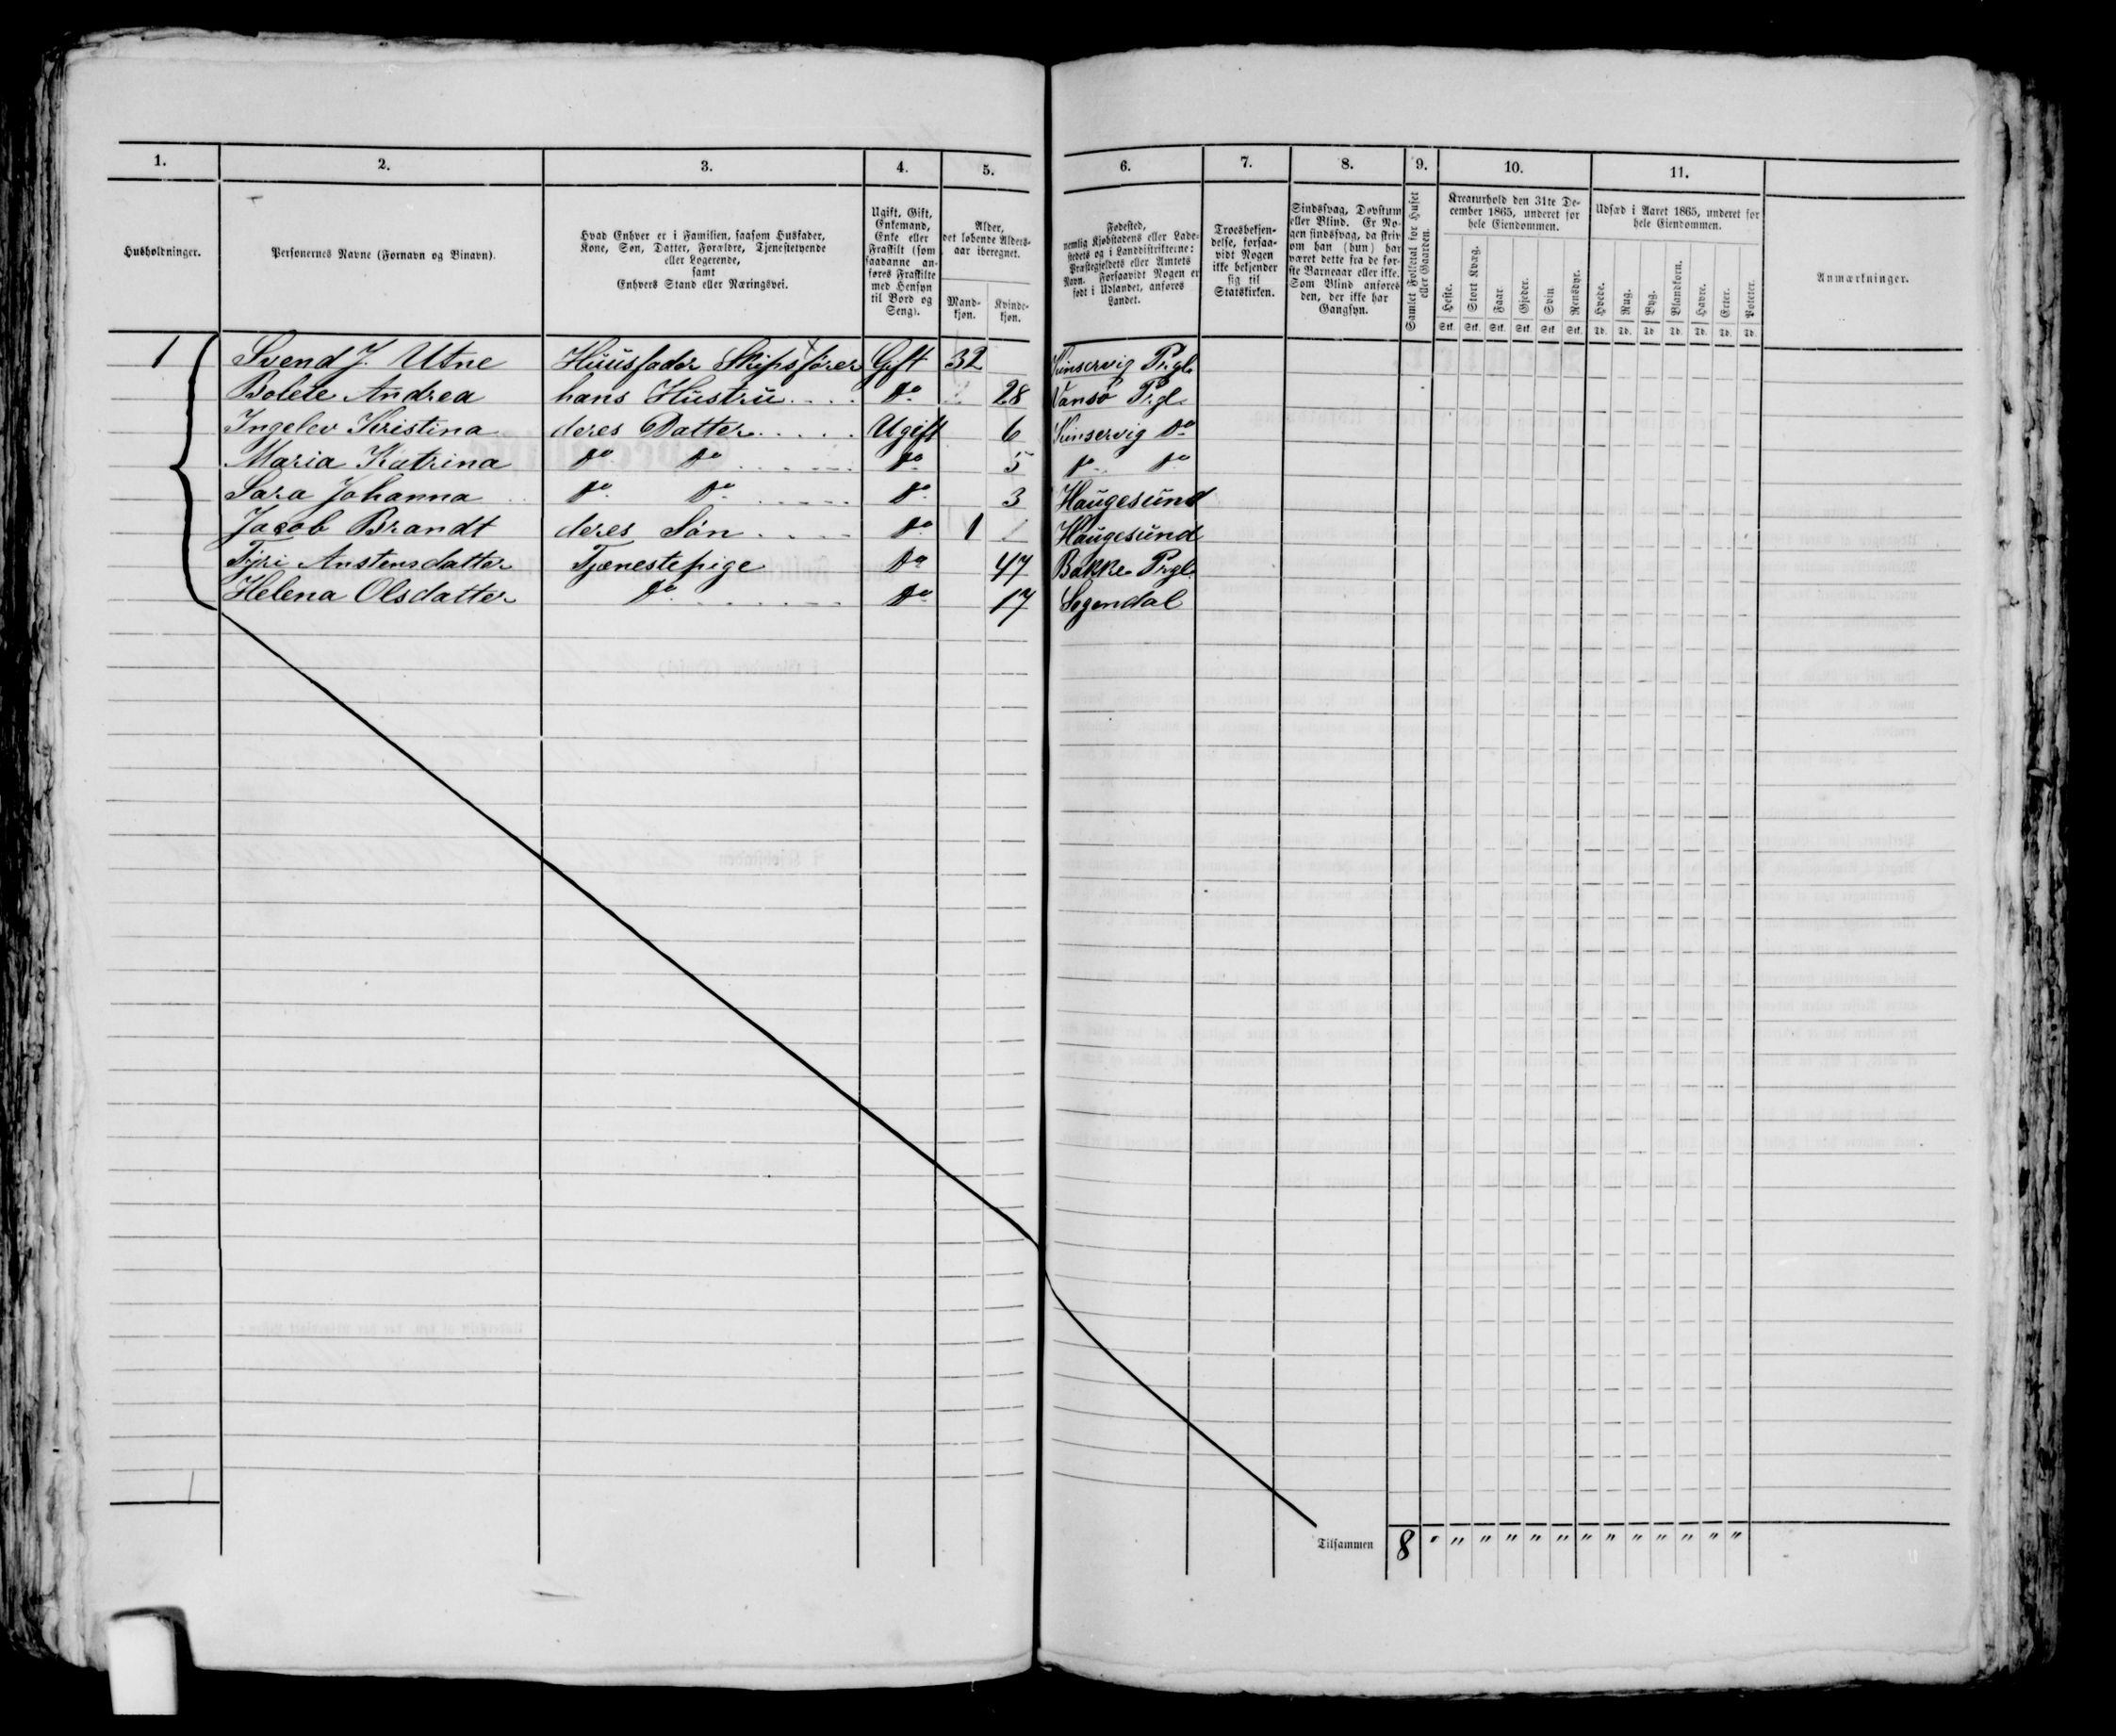 1. 2. 3. 4. 5. 6. 7. 8. 9. 10. 11.
Husholdninger.
Personernes Navne (Fornavn og Binavn).
Hvad Enhver er i Familien, saasom Husfader,
Kone, Søn, Datter, Forældre, Tjenestetyende
eller Logerende,
samt
Enhvers Stand eller Næringsvei.
Ugift, Gift,
Enkemand,
Enke eller
Fraskilt (som
saadanne an-
føres Fraskilte
med Hensyn
til Bord og
Seng).
Alder,
det løbende Alders-
aar iberegnet.
Mand-
kjøn.
Kvinde-
kjøn.
Fødested,
nemlig Kjøbstadens eller Lade-
stedets og i Landdistrikterne:
Præstegjeldets eller Amtets
Navn. Forsaavidt Nogen er
født i Udlandet, anføres
Landet.
Troesbekjen-
delse, forsaa-
vidt Nogen
ikke bekjender
sig til
Statskirken.
Sindssvag, Døvstum
eller Blind. Er No-
gen sindssvag, da skriv
om han (hun) har
været dette fra de før-
ste Barneaar eller ikke.
Som Blind anføres
den, der ikke har
Gangsyn.
Samlet Folketal for Huset
eller Gaarden.
Kreaturhold den 31te De-
cember 1865, underet for
hele Eiendommen.
Heste. Stort Kvæg. Faar. Gjeder. Svin Rensdyr.
Stk. Stk. Stk. Stk. Stk. Stk.
Udsæd i Aaret 1865, underet for
hele Eiendommen.
Hvede. Rug. Byg. Blandkorn. Havre. Erter. Poteter.
Td. Td. Td. Td. Td. Td. Td.
Anmærkninger.
1 Svend J. Utne Huusfader Skipsfører Gift 32 Kinservig Prgl.
Bolete Andrea hans Hustru do 28 Vansø Prgl.
Ingelev Kristina deres Datter Ugift 6 Kinservig do
Maria Katrina do do do 5 do do
Sara Johanna do do do 3 Haugesund
Jacob Brandt deres Søn do 1 Haugesund
Tyri Anstensdatter Tjænestepige do 47 Bakke Prgl.
Helena Olsdatter do do 17 Sogendal
Tilsammen 8 " " " " " " " " " " " " "